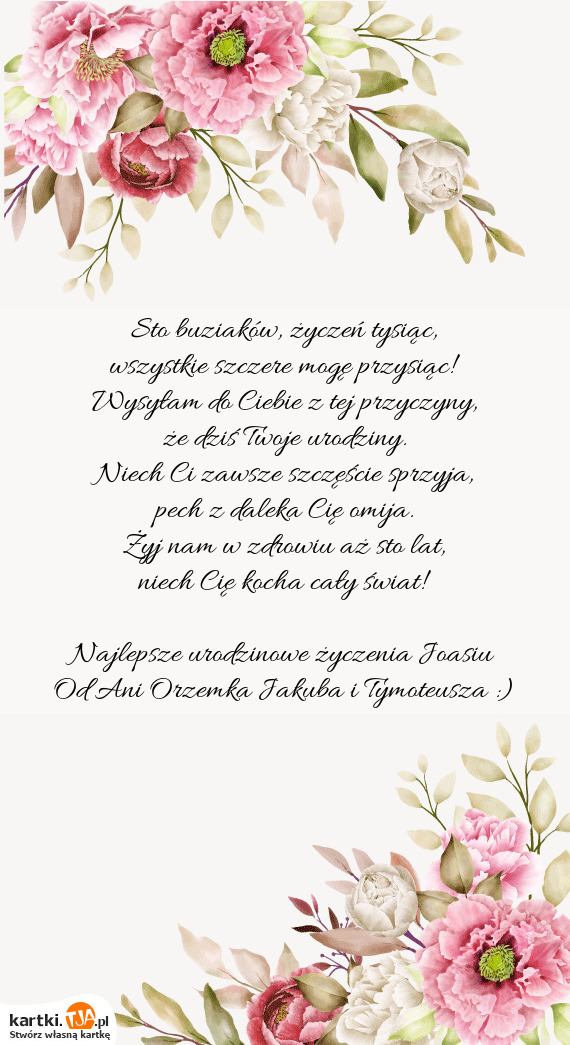 Sto buziaków, życzeń tysiąc,
wszystkie szczere mogę przysiąc!
Wysyłam do Ciebie z tej przyczyny,
że dziś Twoje urodziny.
Niech Ci zawsze szczęście sprzyja,
pech z daleka Cię omija.
Żyj nam w zdrowiu aż sto lat,
niech Cię kocha cały świat!
Najlepsze urodzinowe życzenia Joasiu
Od Ani Orzemka Jakuba i Tymoteusza :)
kartki.TJA.pl
Stwórz własną kartkę